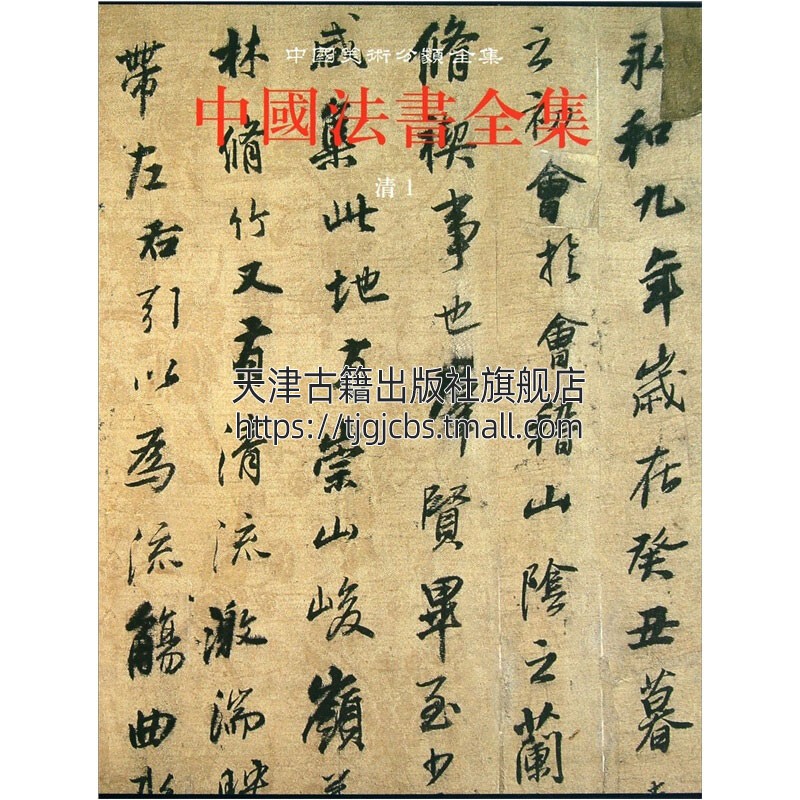 中國美術分類全集
中國法書全集
清1
永和九年歲在癸丑暮
之初會於會稽山陰之蘭
脩禊事也羣賢畢至少
咸集此地有崇山峻嶺
林脩竹又有清流激湍映
帶左右引以為流觴曲水
天津古籍出版社旗舰店
https://tjgjcbs.tmall.com